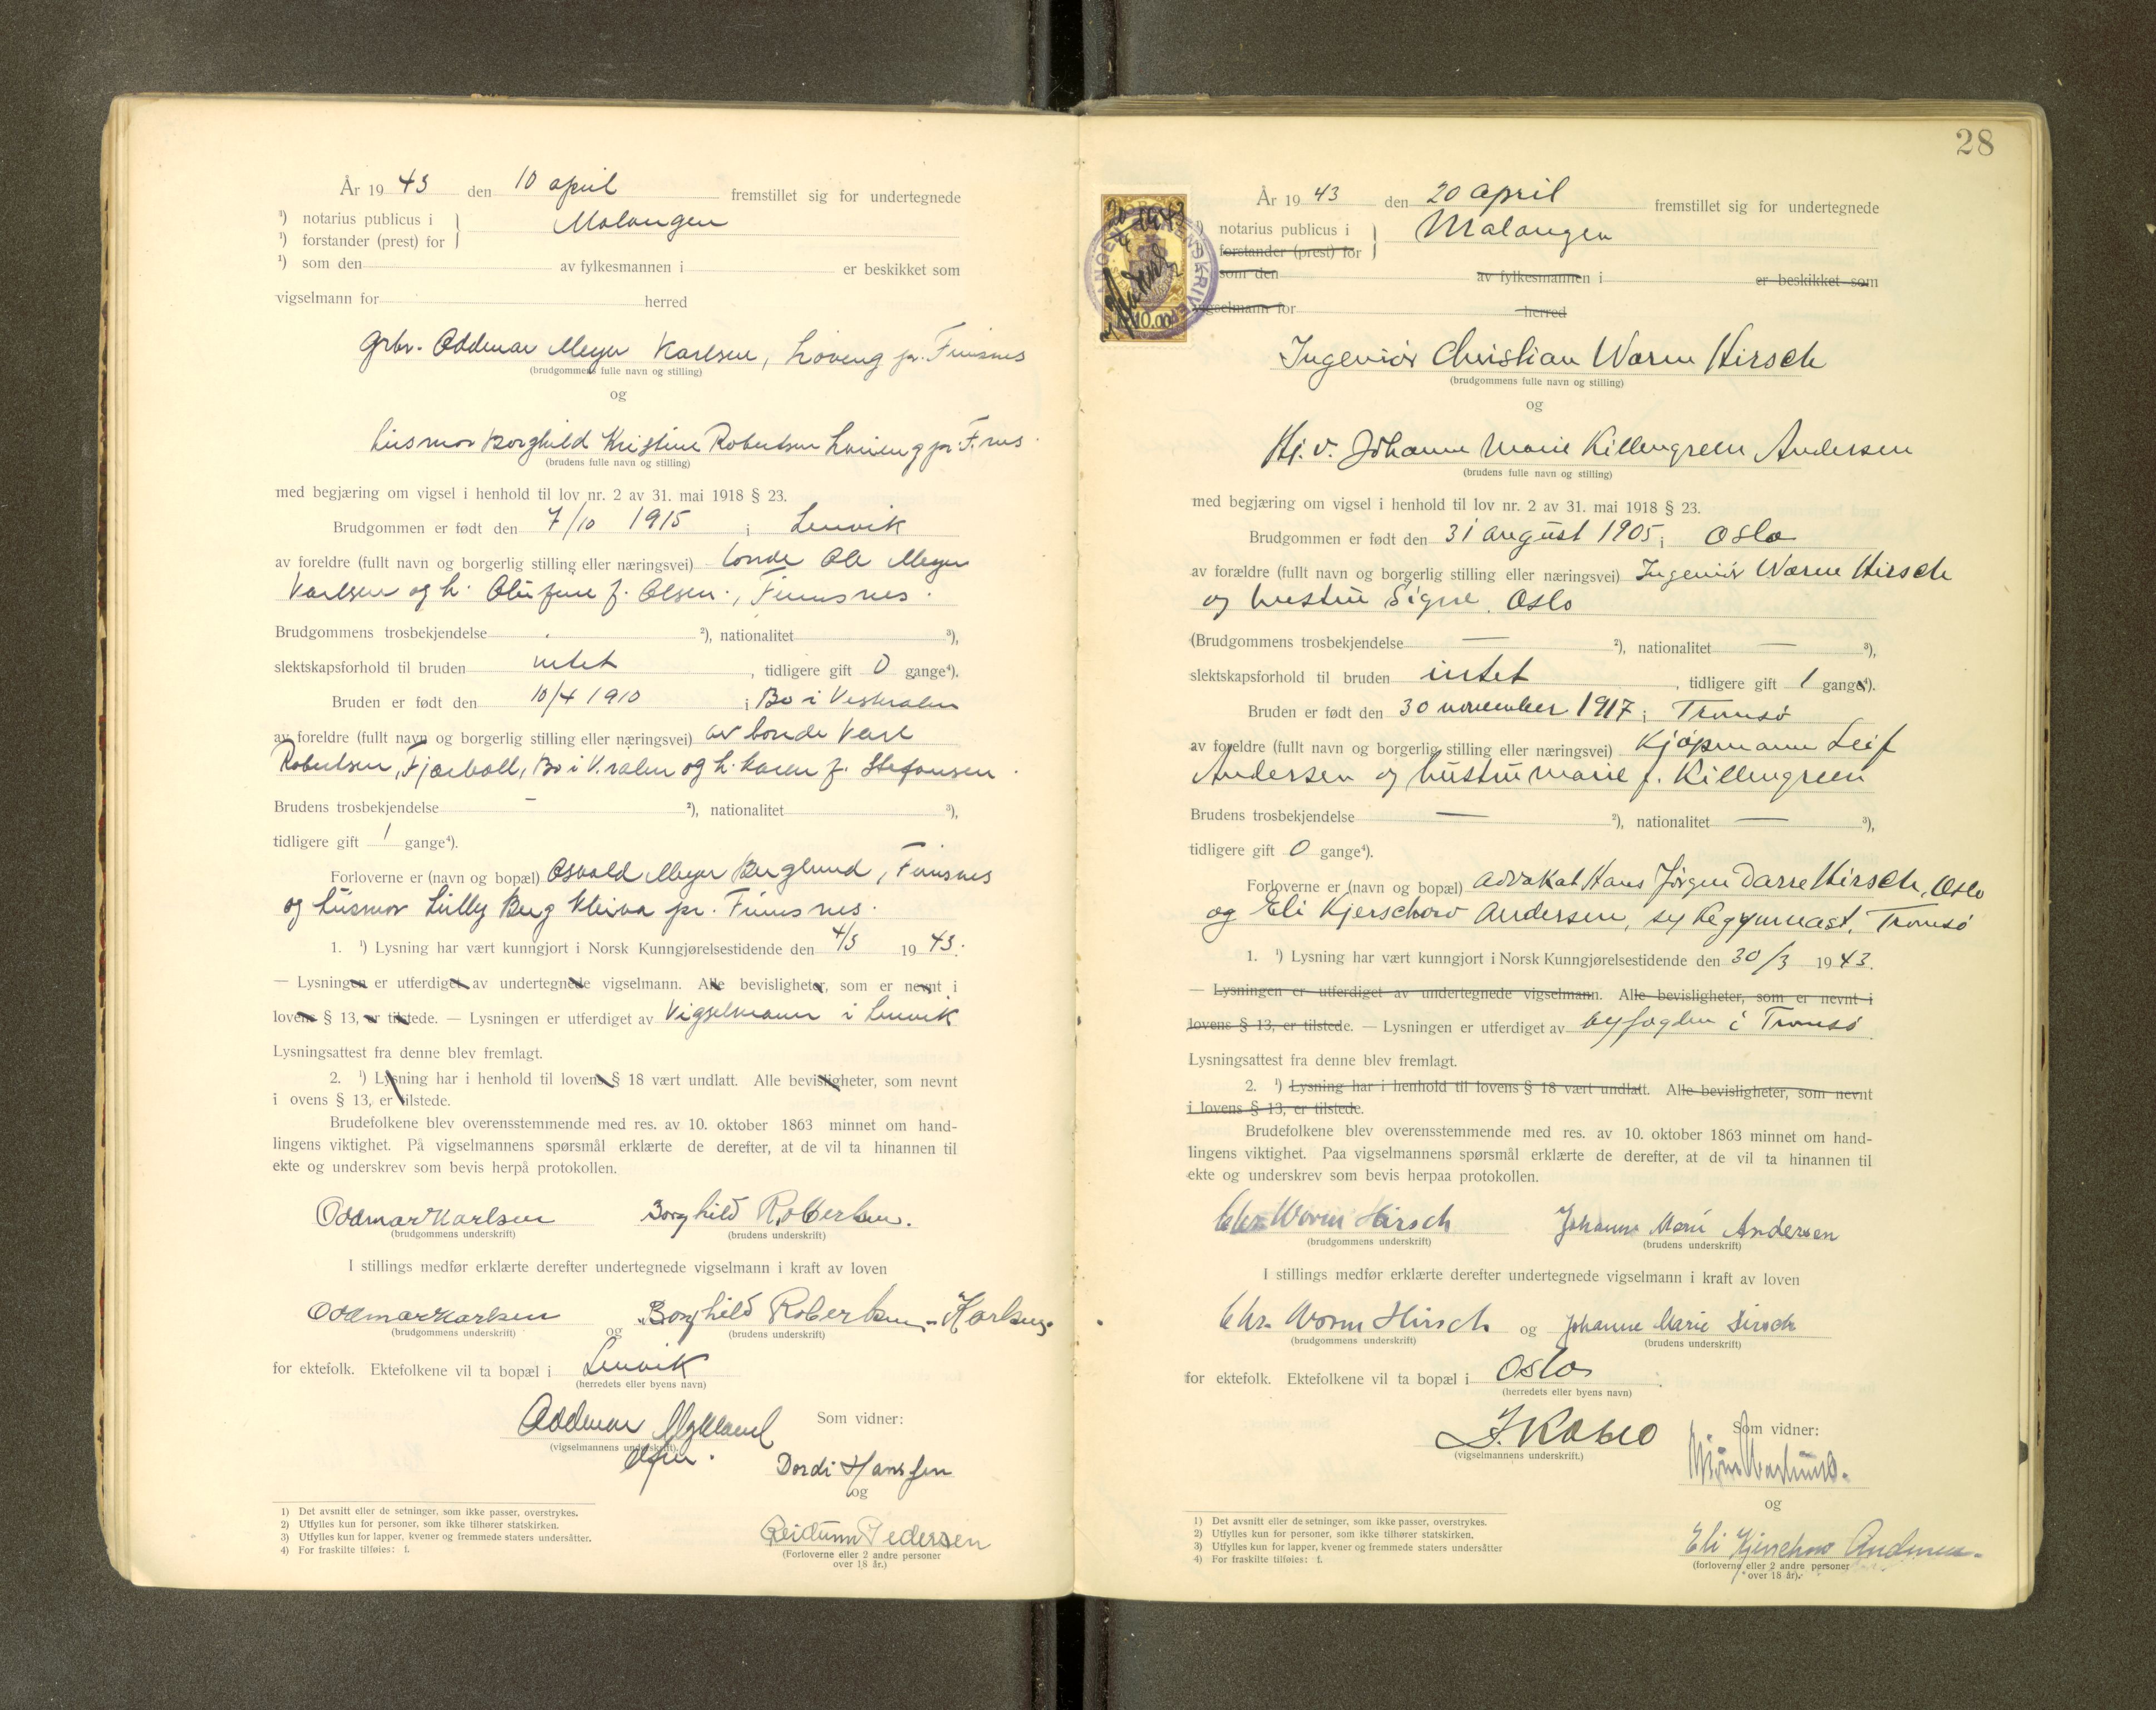 År 1943 den 10 april fremstillet sig for undertegnede
¹) notarius publicus i } Malangen
¹) forstander (prest) for
¹) som den av fylkesmannen i er beskikket som
vigselmann for herred
Grbr. Oddmar Meyer Karlsen, Loveng pr. Finsnes
(brudgommens fulle navn og stilling)
og
husmor Borghild Kristine Robertsen Loveng pr. F.snes.
(brudens fulle navn og stilling)
med begjæring om vigsel i henhold til lov nr. 2 av 31. mai 1918 § 23.
Brudgommen er født den 7/10 1915 i Lenvik
av foreldre (fullt navn og borgerlig stilling eller næringsvei) bonde Ole Meyer
Karlsen og h. Olufine f. Olsen., Finnsnes.
Brudgommens trosbekjendelse ²), nationalitet ³),
slektskapsforhold til bruden intet, tidligere gift 0 gange⁴).
Bruden er født den 10/4 1910 i Bø i Vesterålen
av foreldre (fullt navn og borgerlig stilling eller næringsvei) av bonde Karl
Robertsen, Fjærvoll, Bø i V.ralen og h. Karen f. Stefansen.
Brudens trosbekjendelse - ²), nationalitet ³),
tidligere gift 1 gange⁴).
Forloverne er (navn og bopæl) Osvald Meyer Berglund, Finsnes
og husmor Lilly Berg Kleiva pr. Finnsnes.
1. ¹) Lysning har vært kunngjort i Norsk Kunngjørelsestidende den 4/3 1943.
— Lysningen er utferdiget av undertegnede vigselmann. Alle bevisligheter, som er nevnt i
lovens § 13, er tilstede. — Lysningen er utferdiget av Vigselmann i Lenvik
Lysningsattest fra denne blev fremlagt.
2. ¹) Lysning har i henhold til lovens § 18 vært undlatt. Alle bevisligheter, som nevnt
i ovens § 13, er tilstede.
Brudefolkene blev overensstemmende med res. av 10. oktober 1863 minnet om hand-
lingens viktighet. På vigselmannens spørsmål erklærte de derefter, at de vil ta hinannen til
ekte og underskrev som bevis herpå protokollen.
Oddmar Karlsen Borghild Robertsen.
(brudgommens underskrift) (brudens underskrift)
I stillings medfør erklærte derefter undertegnede vigselmann i kraft av loven
Oddmar Karlsen og Borghild Robertsen-Karlsen.
(brudgommens underskrift) (brudens underskrift)
for ektefolk. Ektefolkene vil ta bopæl i Lenvik
(herredets eller byens navn)
Oddmar Myklevoll Som vidner:
(vigselmannens underskrift).
Dordi Hanssen
og
Reidunn Pedersen
(Forloverne eller 2 andre personer
over 18 år.)
1) Det avsnitt eller de setninger, som ikke passer, overstrykes.
2) Utfylles kun for personer, som ikke tilhører statskirken.
3) Utfylles kun for lapper, kvener og fremmede staters undersåtter.
4) For fraskilte tilføies: f.
28
År 1943 den 20 april fremstillet sig for undertegnede
notarius publicus i } Malangen
forstander (prest) for
som den av fylkesmannen i er beskikket som
vigselmann for herred
10.00
Ingeniør Christian Worm Hirsch
(brudgommens fulle navn og stilling)
og
Hj.v. Johanne Marie Killengreen Andersen
(brudens fulle navn og stilling)
med begjæring om vigsel i henhold til lov nr. 2 av 31. mai 1918 § 23.
Brudgommen er født den 31 august 1905 i Oslo
av forældre (fullt navn og borgerlig stilling eller næringsvei) Ingeniør Worm Hirsch
og hustru Signe. Oslo
(Brudgommens trosbekjendelse — ²), nationalitet — ³),
slektskapsforhold til bruden intet, tidligere gift 1 gange⁴).
Bruden er født den 30 november 1917 i Tromsø
av foreldre (fullt navn og borgerlig stilling eller næringsvei) Kjøpmann Leif
Andersen og hustru Marie f. Killengreen
Brudens trosbekjendelse — ²), nationalitet — ³),
tidligere gift 0 gange⁴).
Forloverne er (navn og bopæl) advokat Hans Jørgen Darre Hirsch, Oslo
og Eli Kjerschow Andersen, sykegymnast, Tromsø
1. ¹) Lysning har vært kunngjort i Norsk Kunngjørelsestidende den 30/3 1943.
— Lysningen er utferdiget av undertegnede vigselmann. Alle bevisligheter, som er nevnt i
lovens § 13, er tilstede. — Lysningen er utferdiget av byfogden i Tromsø
Lysningsattest fra denne blev fremlagt.
2. ¹) Lysning har i henhold til lovens § 18 vært undlatt. Alle bevisligheter, som nevnt
i lovens § 13, er tilstede.
Brudefolkene blev overensstemmende med res. av 10. oktober 1863 minnet om hand-
lingens viktighet. Paa vigselmannens spørsmål erklærte de derefter, at de vil ta hinannen til
ekte og underskrev som bevis herpaa protokollen.
Chr. Worm Hirsch Johanne Marie Andersen
(brudgommens underskrift) (brudens underskrift)
I stillings medfør erklærte derefter undertegnede vigselmann i kraft av loven
Chr. Worm Hirsch og Johanne Marie Hirsch
(brudgommens underskrift) (brudens underskrift)
for ektefolk. Ektefolkene vil ta bopæl i Oslo
(herredets eller byens navn)
Som vidner:
(vigselmannens underskrift.)
og
Eli Kjerschow Andersen.
(forloverne eller 2 andre personer
over 18 år).
1) Det avsnitt eller de setninger, som ikke passer, overstrykes.
2) Utfylles kun for personer, som ikke tilhører statskirken.
3) Utfylles kun for lapper, kvener og fremmede staters undersåtter
4) For fraskilte tilføies: f.